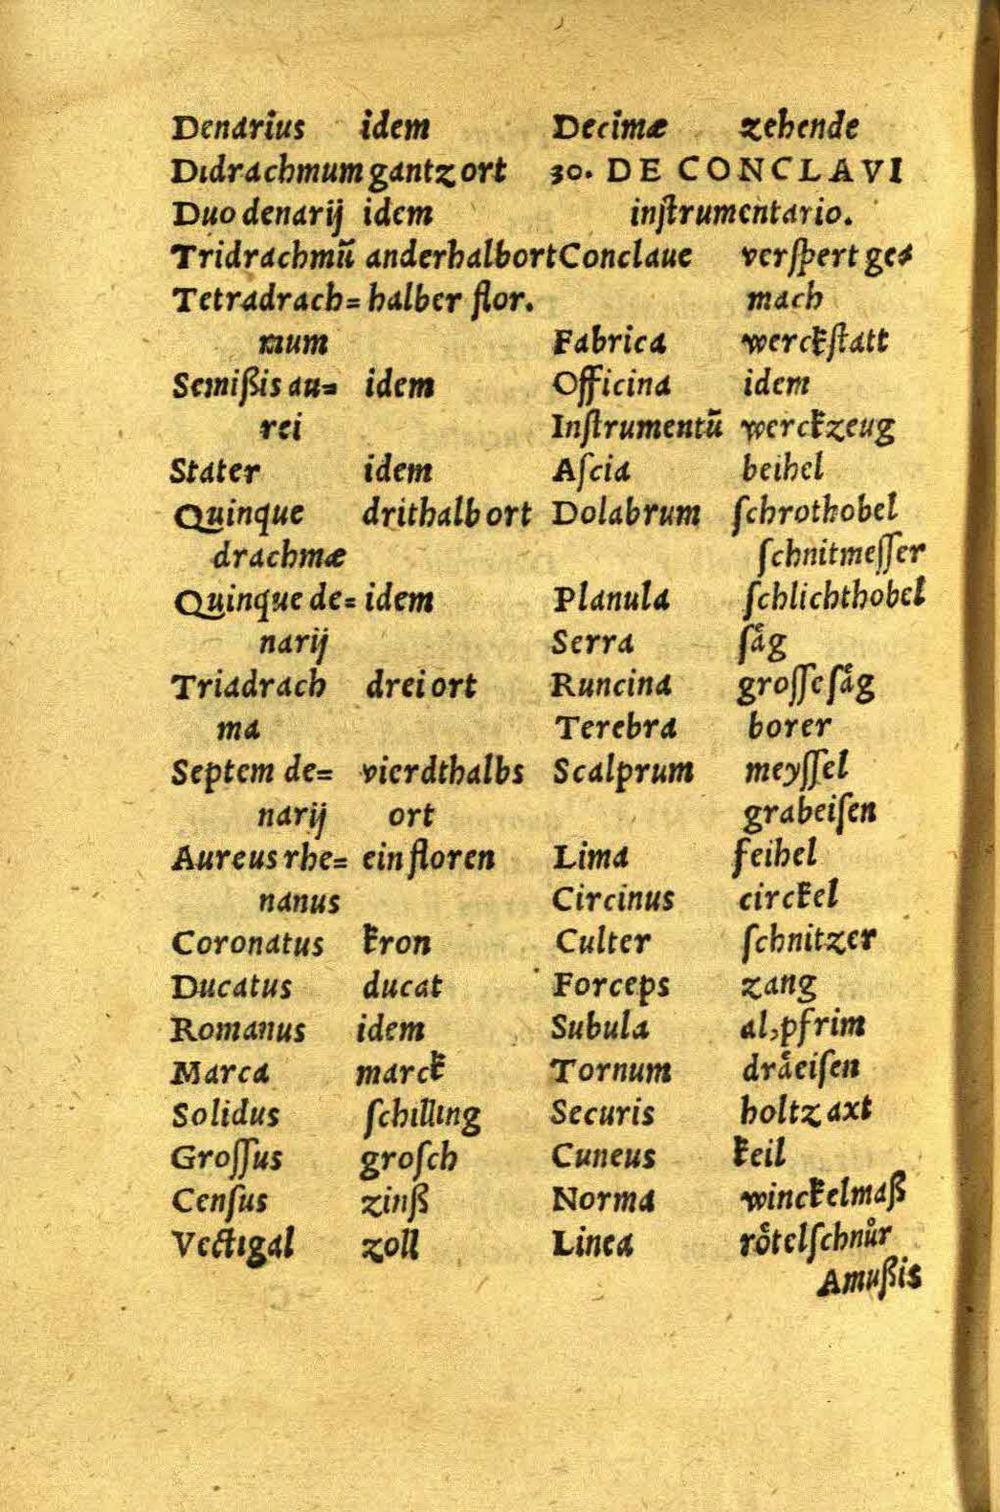 Denarius idem
Didrachmum gantz ort
Duo denarij idem
Tridrachmū anderhalb ort
Tetradrach= halber flor.
mum
Semißis au= idem
rei
Stater idem
Quinque drithalb ort
drachmæ
Quinque de= idem
narij
Triadrach drei ort
ma
Septem de= vierdthalbs
narij ort
Aureus rhe= ein floren
nanus
Coronatus kron
Ducatus ducat
Romanus idem
Marca marck
Solidus ſchilling
Groſſus groſch
Cenſus zinß
Vectigal zoll
Decimæ zehende
30. DE CONCLAVI
inſtrumentario.
Conclaue verſpert ge=
mach
Fabrica werckſtatt
Officina idem
Inſtrumentū werckzeug
Aſcia beihel
Dolabrum ſchrothobel
ſchnitmeſſer
Planula ſchlichthobel
Serra ſåg
Runcina groſſe ſåg
Terebra borer
Scalprum meyſſel
grabeiſen
Lima feihel
Circinus circkel
Culter ſchnitzer
Forceps zang
Subula al,pfrim
Tornum dråeiſen
Securis holtz axt
Cuneus keil
Norma winckelmaß
Linea rötelſchnůr
Amußis